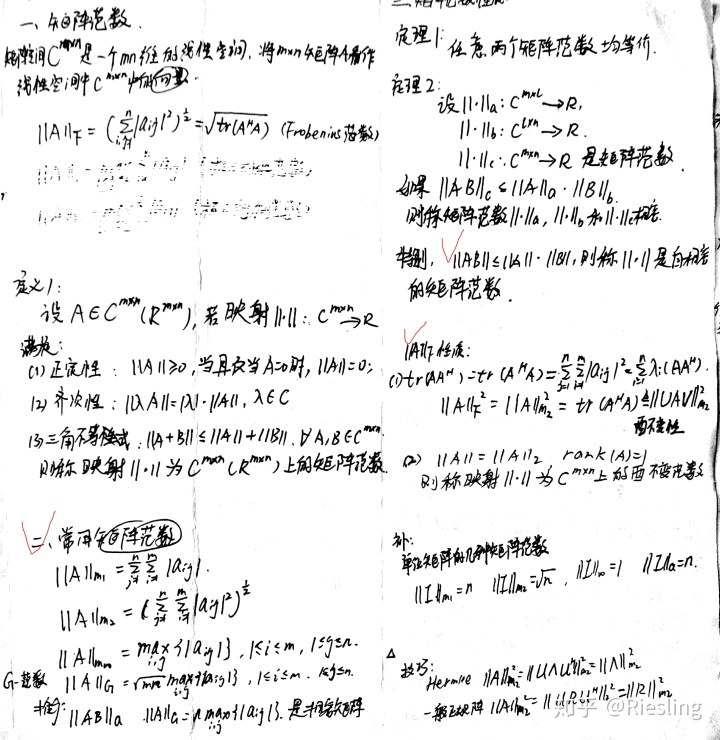 一、矩阵范数.
矩阵空间 C^{m×n} 是一个 mn 维的线性空间, 将 m×n 矩阵A看作
线性空间中 C^{m×n} 中的向量.
||A||_F = (∑_{i,j=1}^{n} |a_{ij}|²)^{1/2} = √tr(A^H A) (Frobenius范数)
定义1:
设 A∈C^{m×n} (R^{m×n}), 若映射 ||·||: C^{m×n} → R
满足:
(1) 正定性: ||A||≥0, 当且仅当 A=0时, ||A||=0;
(2) 齐次性: ||λA||=|λ|·||A||, λ∈C
(3) 三角不等式: ||A+B||≤||A||+||B||. ∀A,B∈C^{m×n}.
则称映射 ||·|| 为 C^{m×n} (R^{m×n}) 上的矩阵范数.
二、常用矩阵范数
||A||_{m1} = ∑_{j=1}^{n} ∑_{i=1}^{m} |a_{ij}|.
||A||_{m2} = (∑_{j=1}^{n} ∑_{i=1}^{m} |a_{ij}|²)^{1/2}
||A||_{m∞} = max_{i,j}{|a_{ij}|}, 1≤i≤m, 1≤j≤n.
G-范数 ||A||_G = √mn max_{i,j}{|a_{ij}|}, 1≤i≤m. 1≤j≤n.
||AB||_a ||A||_a = n max{|a_{ij}|}. 是相容矩阵
定理1: 任意两个矩阵范数均等价.
定理2:
设 ||·||_a: C^{m×l} → R,
||·||_b: C^{l×n} → R.
||·||_c: C^{m×n} → R 是矩阵范数.
如果 ||AB||_c ≤ ||A||_a · ||B||_b.
则称矩阵范数 ||·||_a, ||·||_b 和 ||·||_c 相容.
特别, ||AB||≤||A||·||B||, 则称 ||·|| 是自相容
的矩阵范数.
||A||_F 性质:
(1) tr(AA^H) = tr(A^H A) = ∑_{j=1}^{n} ∑_{i=1}^{m} |a_{ij}|² = ∑_{i=1}^{n} λ_i(AA^H).
||A||_F² = ||A||_{m2}² = tr(A^H A) = ||UAV||_{m2}²
酉不变性
(2) ||A|| = ||A||_2 rank(A)=1
则称映射 ||·|| 为 C^{m×n} 上的酉不变范数
补:
单位矩阵的几种矩阵范数
||I||_{m1} = n ||I||_{m2} = √n, ||I||_∞ = 1 ||I||_a = n.
技巧:
Hermite ||A||_{m2}² = ||UΛU^H||_{m2}² = ||Λ||_{m2}²
一般矩阵 ||A||_{m2}² = ||URU^H||_{m2}² = ||R||_{m2}²
知乎 @Riesling